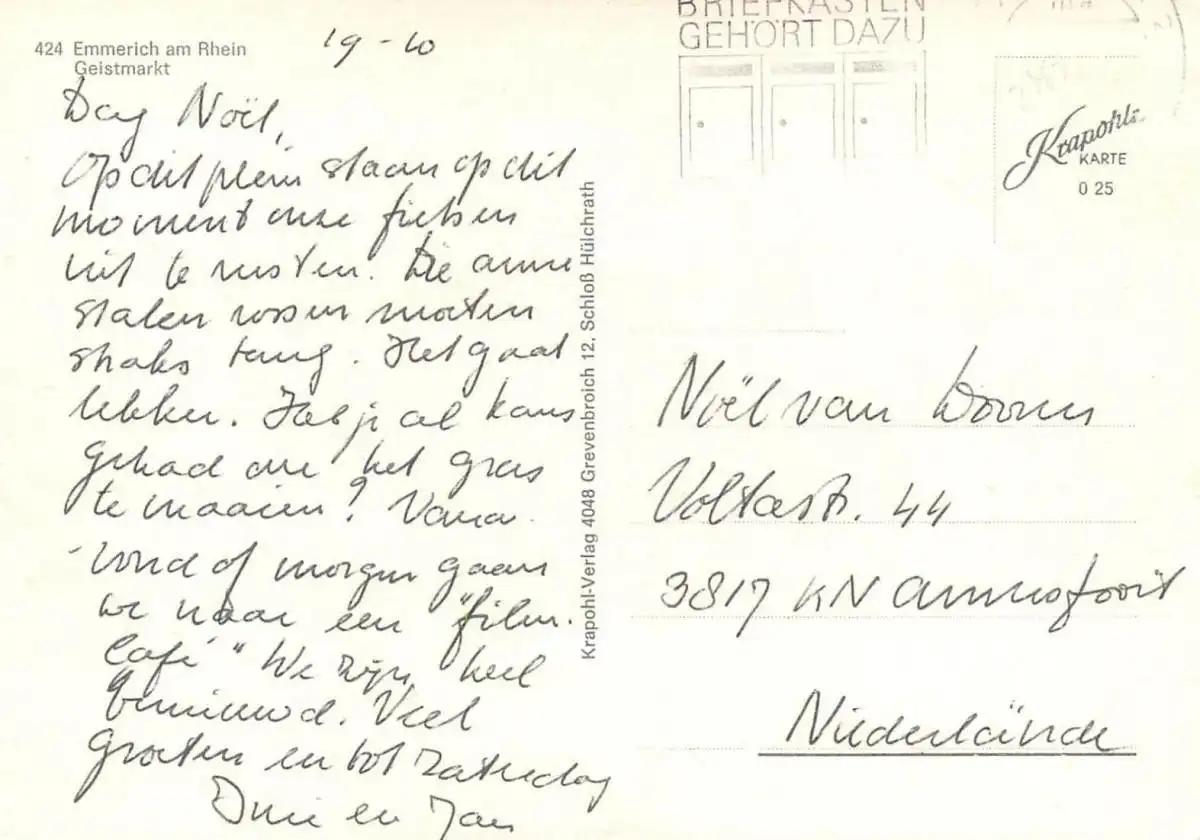 424 Emmerich am Rhein
Geistmarkt
19-10
Dag Noël,
Op dit plein staan op dit
moment onze fietsen
uit te rusten. Die arme
stalen rossen moeten
straks terug. Het gaat
lekker. Heb je al kans
gehad om het gras
te maaien? Vana-
vond of morgen gaan
we naar een "film-
café" We zijn heel
benieuwd. Veel
groeten en tot zaterdag
en Jan
Krapohl-Verlag 4048 Grevenbroich 12, Schloß Hülchrath
BRIEFKASTEN
GEHÖRT DAZU
Krapohl-
KARTE
O 25
Noël van Doorn
Voltastr. 44
3817 KN Amersfoort
Niederlände